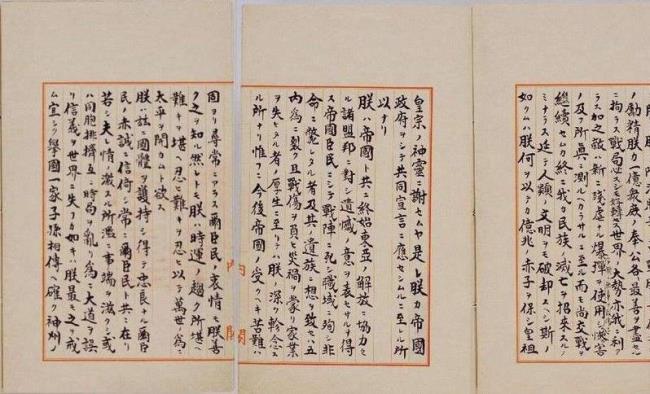 ノ勵精朕カ一億衆庶ノ奉公各最善ヲ盡セル
ニ拘ラス戰局必スシモ好轉セス世界ノ大勢亦我ニ利ア
ラス加之敵ハ新ニ殘虐ナル爆彈ヲ使用シ慘害
ノ及フ所眞ニ測ルヘカラサルニ至ル而モ尚交戰ヲ
繼續セムカ終ニ我カ民族ノ滅亡ヲ招來スルノ
ミナラス延テ人類ノ文明ヲモ破却スヘシ斯ノ
如クムハ朕何ヲ以テカ億兆ノ赤子ヲ保シ皇祖
皇宗ノ神靈ニ謝セムヤ是レ朕カ帝國
政府ヲシテ共同宣言ニ應セシムルニ至レル所
以ナリ
朕ハ帝國ト共ニ終始東亞ノ解放ニ協力セ
ル諸盟邦ニ對シ遺憾ノ意ヲ表セサルヲ得
ス帝國臣民ニシテ戰陣ニ死シ職域ニ殉シ非
命ニ斃レタル者及其ノ遺族ニ想ヲ致セハ五
内爲ニ裂ク且戰傷ヲ負ヒ災禍ヲ蒙リ家業
ヲ失ヒタル者ノ厚生ニ至リテハ朕ノ深ク軫念ス
ル所ナリ惟フニ今後帝國ノ受クヘキ苦難ハ
内閣
固ヨリ尋常ニアラス爾臣民ノ衷情モ朕善
ク之ヲ知ル然レトモ朕ハ時運ノ趨ク所堪ヘ
難キヲ堪ヘ忍ヒ難キヲ忍ヒ以テ萬世ノ爲ニ
太平ヲ開カムト欲ス
朕ハ茲ニ國體ヲ護持シ得テ忠良ナル爾臣
民ノ赤誠ニ信倚シ常ニ爾臣民ト共ニ在リ
若シ夫レ情ノ激スル所濫ニ事端ヲ滋クシ或
ハ同胞排擠互ニ時局ヲ亂リ爲ニ大道ヲ誤
リ信義ヲ世界ニ失フカ如キハ朕最モ之ヲ戒
ム宜シク擧國一家子孫相傳ヘ確ク神州ノ